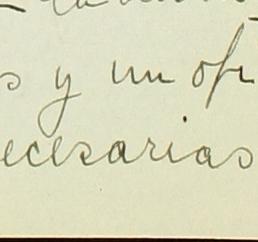 s y un ofi
ecesarias